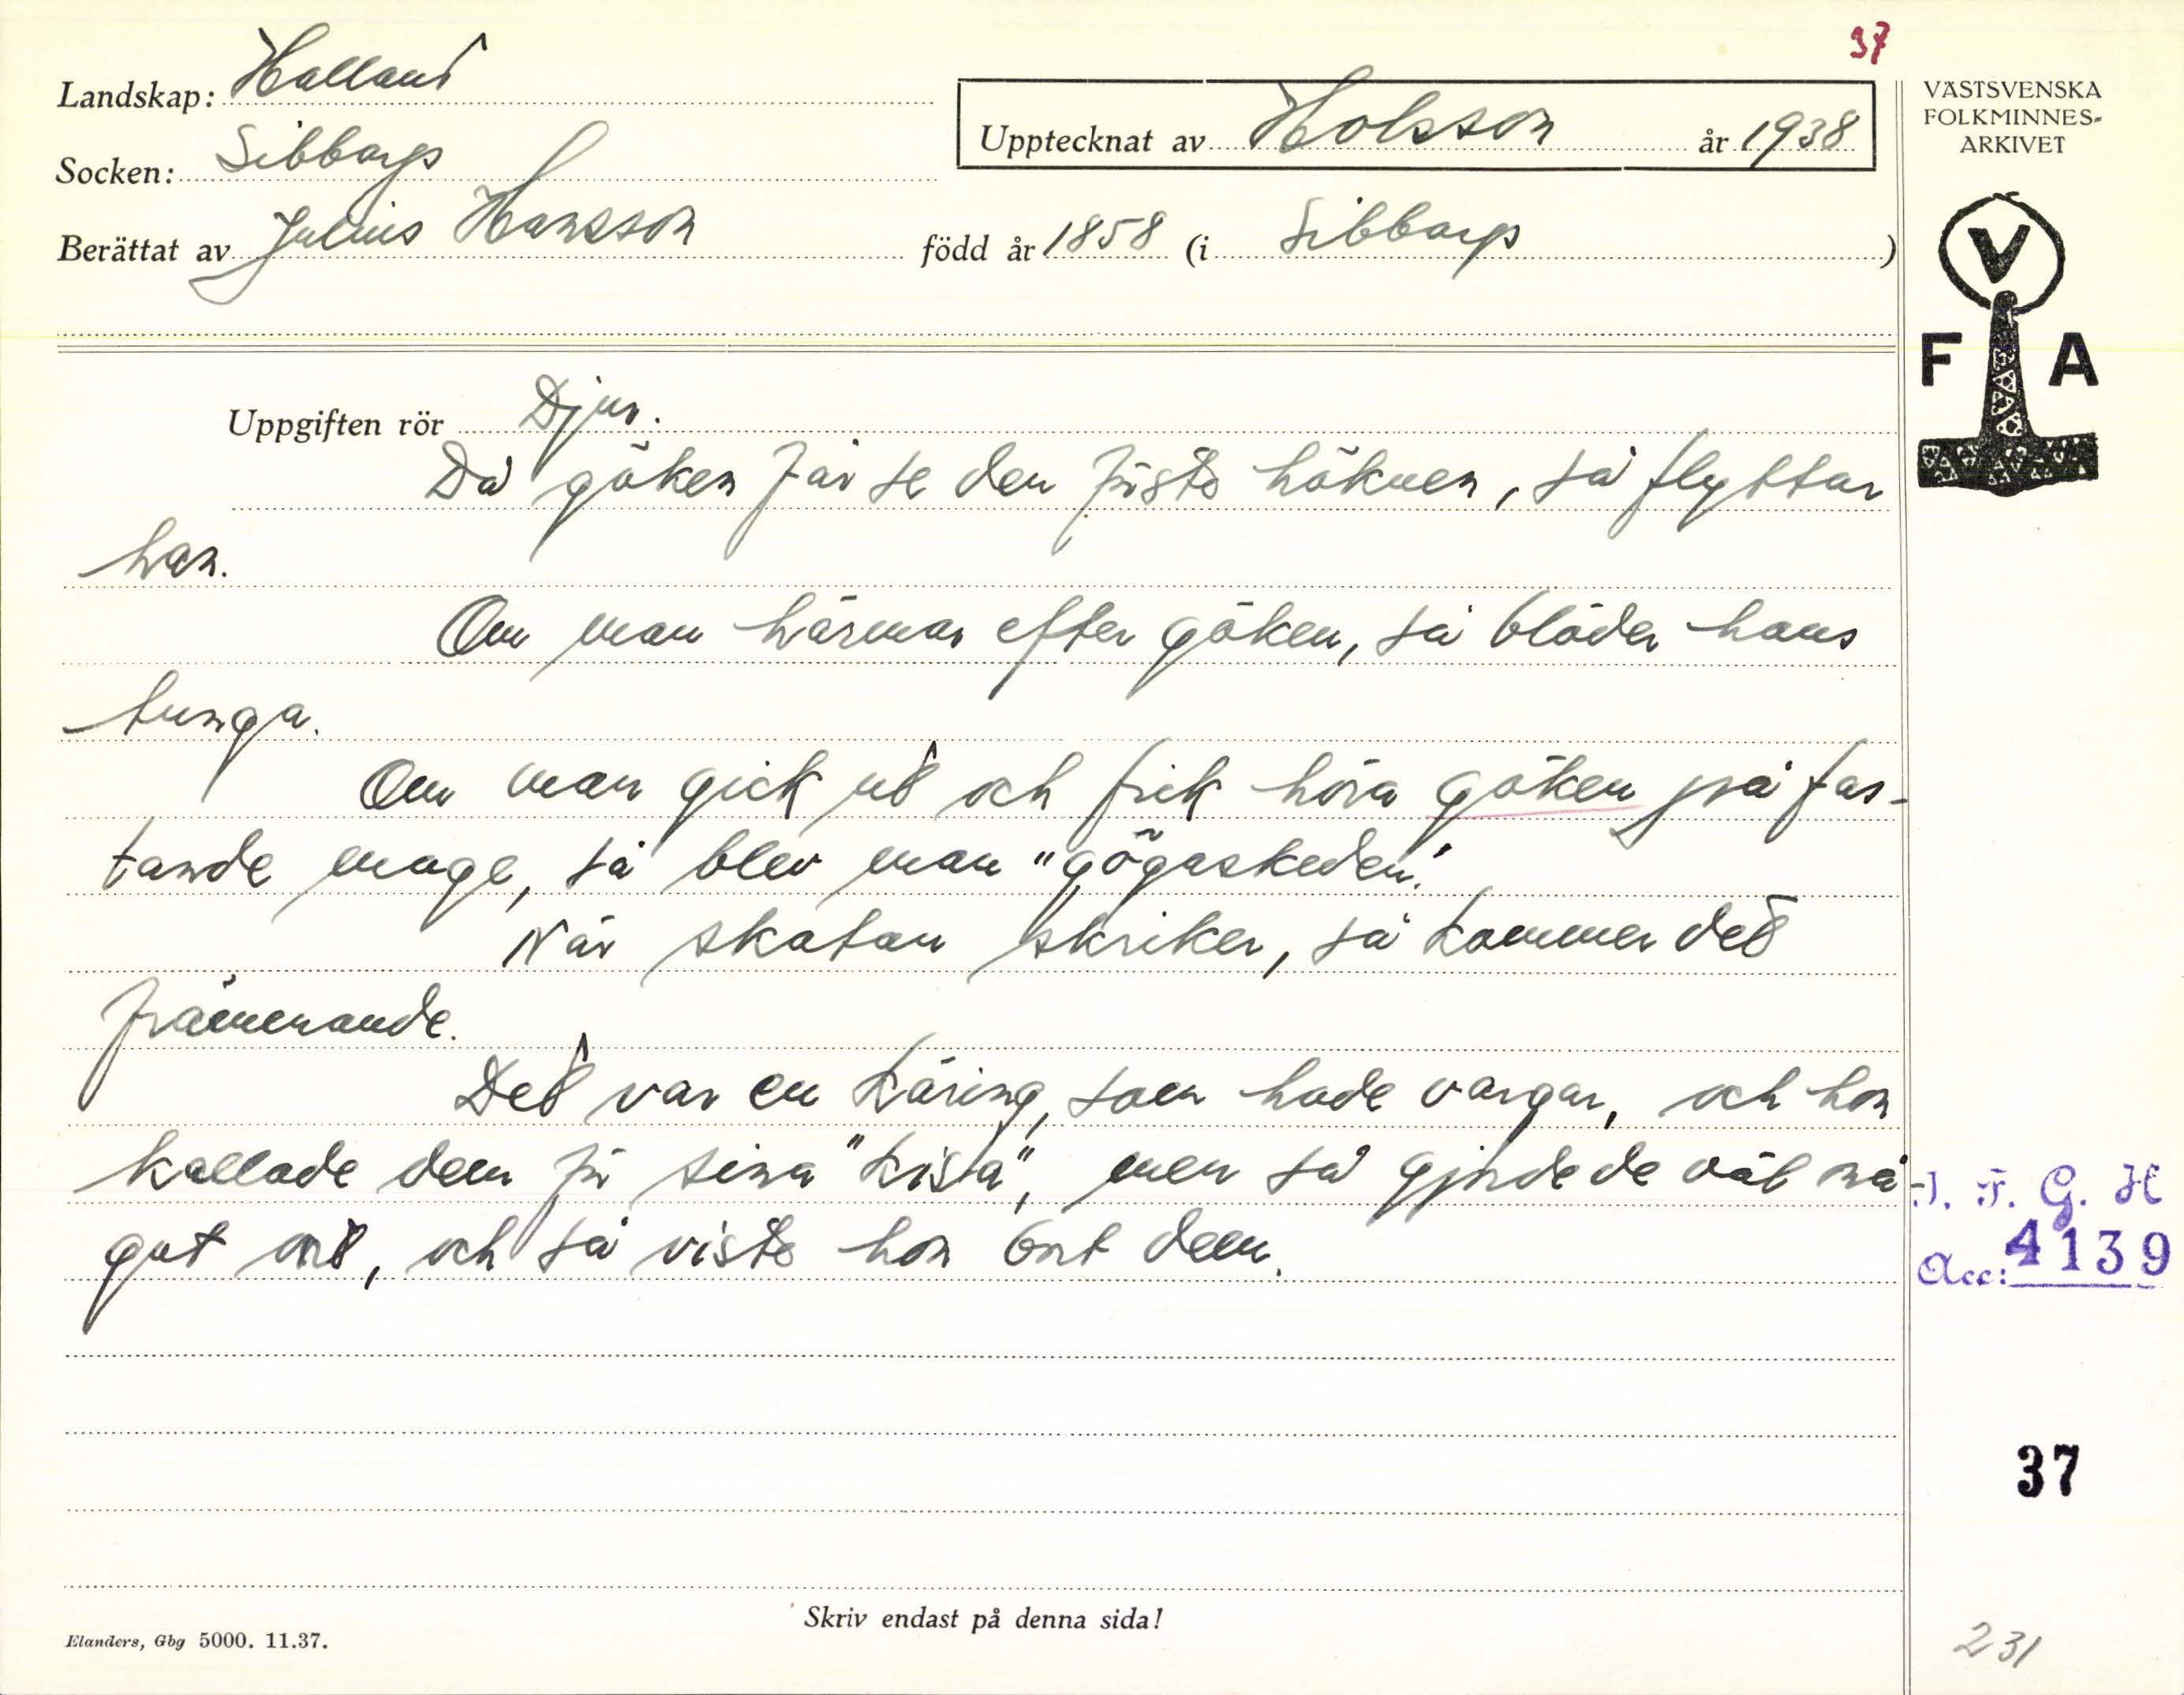 37
Landskap: Halland
Socken: Sibbarp
Upptecknat av Holsson år 1938
Berättat av Julius Hansson född år 1858 (i Sibbarp )
VÄSTSVENSKA
FOLKMINNES-
ARKIVET
V
F A
Uppgiften rör Djur.
Då göken får se den första höknen, så flyttar
han.
Om man härmar efter göken, så blöder hans
tunga.
Om man gick ut och fick höra göken på fas-
tande mage, så blev man "gögaskeden".
När skatan skriker, så kommer det
främmande.
Det var en käring, som hade vargar, och hon
kallade dem för sina "kisa", men så gjorde de väl nå
got ont, och så viste hon bort dem.
I. F. G. H
Acc: 4139
37
Skriv endast på denna sida!
Elanders, Gbg 5000. 11.37.
231